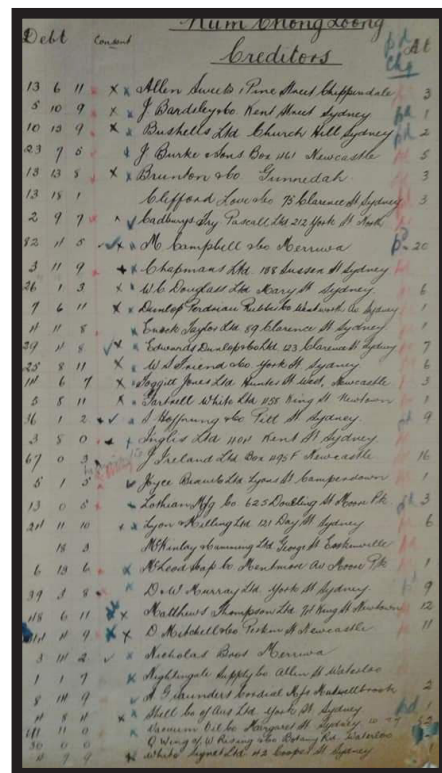 Kum Chong Loong
Debt Consent Creditors pd Chq At
13 6 11 x x Allen Sweets Pine Street Chippendale 3
5 10 9 x J Bardsley & Co Kent Street Sydney pd 1
10 13 9 x x Bushells Ltd Church Hill Sydney pd 2
23 7 5 J Burke & Sons Box 1161 Newcastle 5
13 13 8 x x Brunton & Co Gunnedah 3
13 18 1 Clifford Love & Co 75 Clarence St Sydney 3
2 9 7 x Cadburys Fry Pascall Ltd 212 York St Nth
82 11 5 x M Campbell & Co Merriwa pd 20
3 11 9 x x Chapmans Ltd 188 Sussex St Sydney
26 1 3 x W C Douglass Ltd Mary St Sydney 6
7 6 11 x x Dunlop Perdriau Rubber Co Wentworth Av Sydney 1
4 11 8 Enock Taylor Ltd 89 Clarence St Sydney 1
29 11 8 x Edwards Dunlop & Co Ltd 123 Clarence St Sydney 7
25 8 11 x W S Friend & Co York St Sydney 6
14 6 7 x x Foggitt Jones Ltd Hunter St West, Newcastle 3
5 8 11 x Gartrell White Ltd 1158 King St Newtown 1
36 1 2 S Hoffnung & Co Pitt St Sydney. pd 9
3 8 0 Inglis Ltd Kent St Sydney
67 0 3 J Ireland Ltd Box 1195 F Newcastle 16
5 1 5 Joyce Ltd Lyons St Camperdown 1
13 0 5 Lothian Mfg Co 625 Dowling St Moore Pk pd 3
24 11 10 x Lyon & Ltd 131 Day St Sydney 6
18 3 McKinlay Ltd George St Erskineville
6 13 6 McLeod Soap Co Kentmore Av Moore Pk 1
39 3 8 D & W Murray Ltd York St Sydney 9
48 6 11 x Matthews Thompson Ltd 71 King St Newtown 12
44 4 9 x x D Mitchell & Co Perkin St Newcastle 11
3 14 2 Nicholas Bros Merriwa
1 1 7 x Nightingale Supply Co Allen St Waterloo
8 14 9 A G Saunders Cordial Mfr Muswellbrook 2
4 8 4 x Shell Co of Aus Ltd York St Sydney 1
11 0 Vacuum Oil Co Margaret St Sydney
30 0 0 Q Wing of W & Co Botany Rd, Waterloo
4 7 9 White Signet Ltd 42 Cooper St Sydney 1